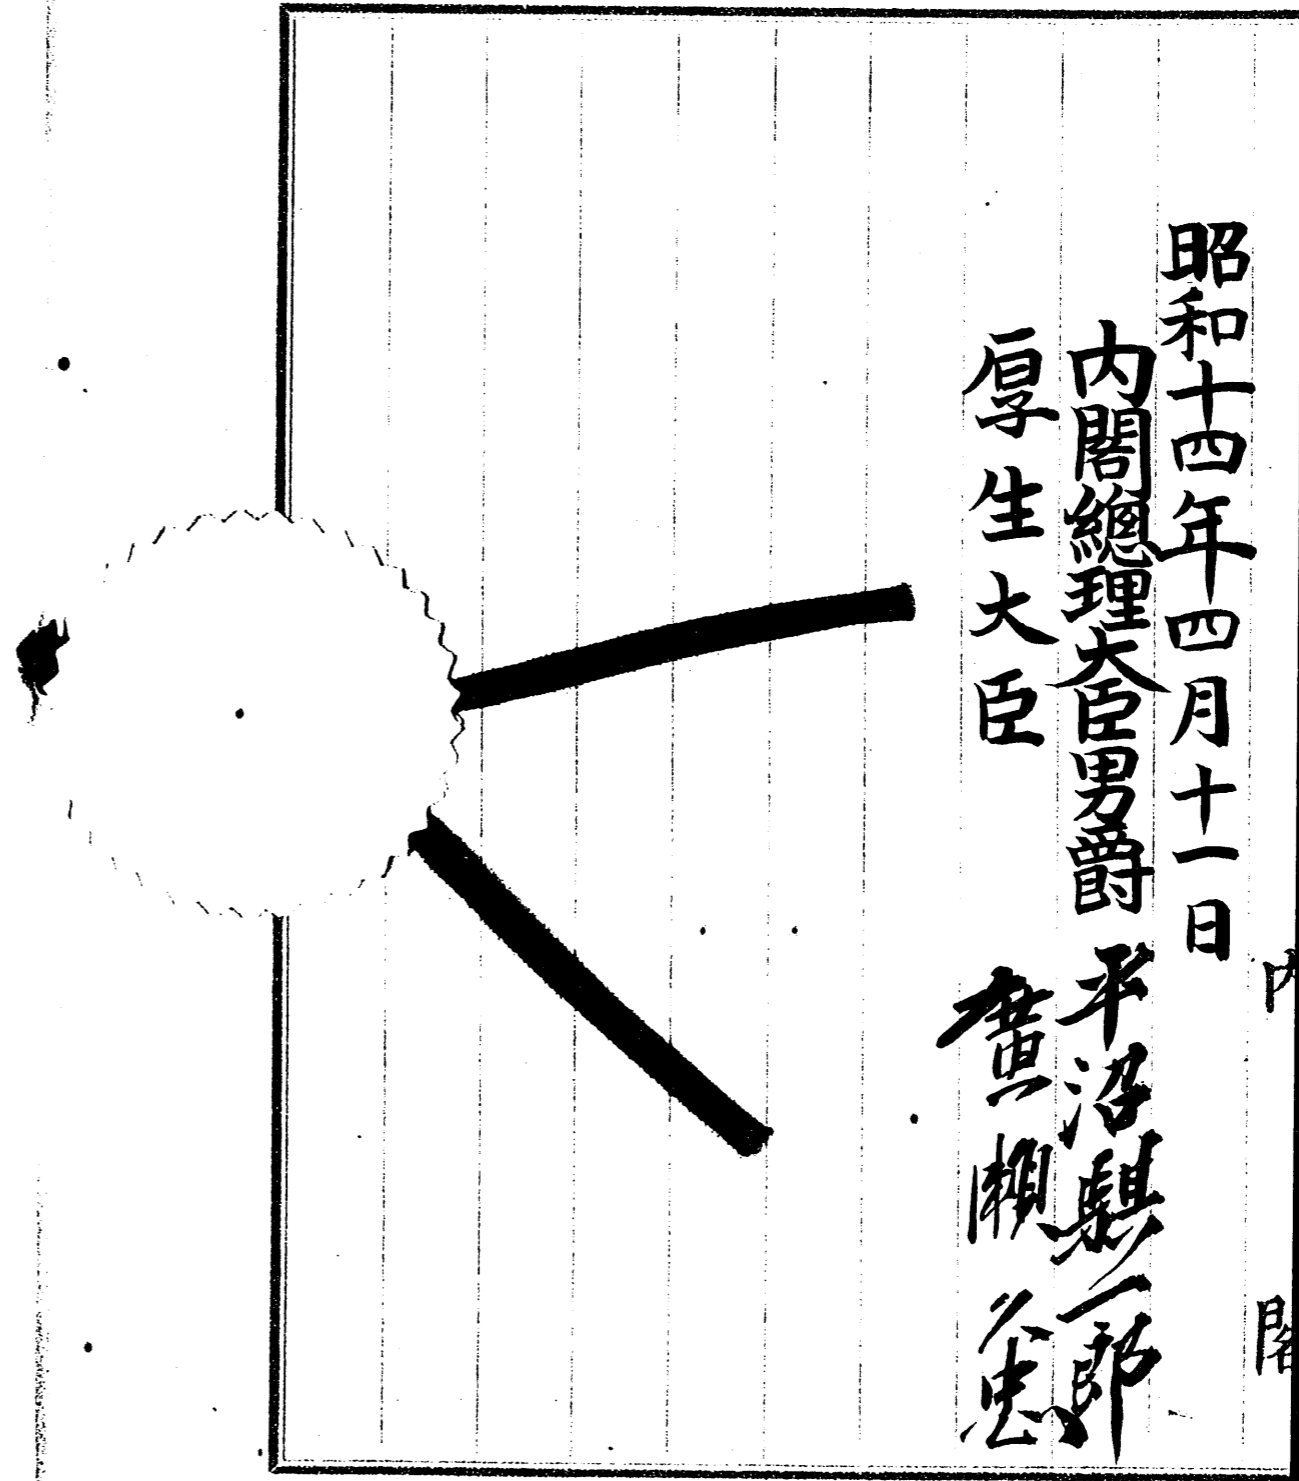 昭和十四年四月十一日
内閣總理大臣男爵平沼騏一郎
厚生大臣廣瀬久忠
内閣